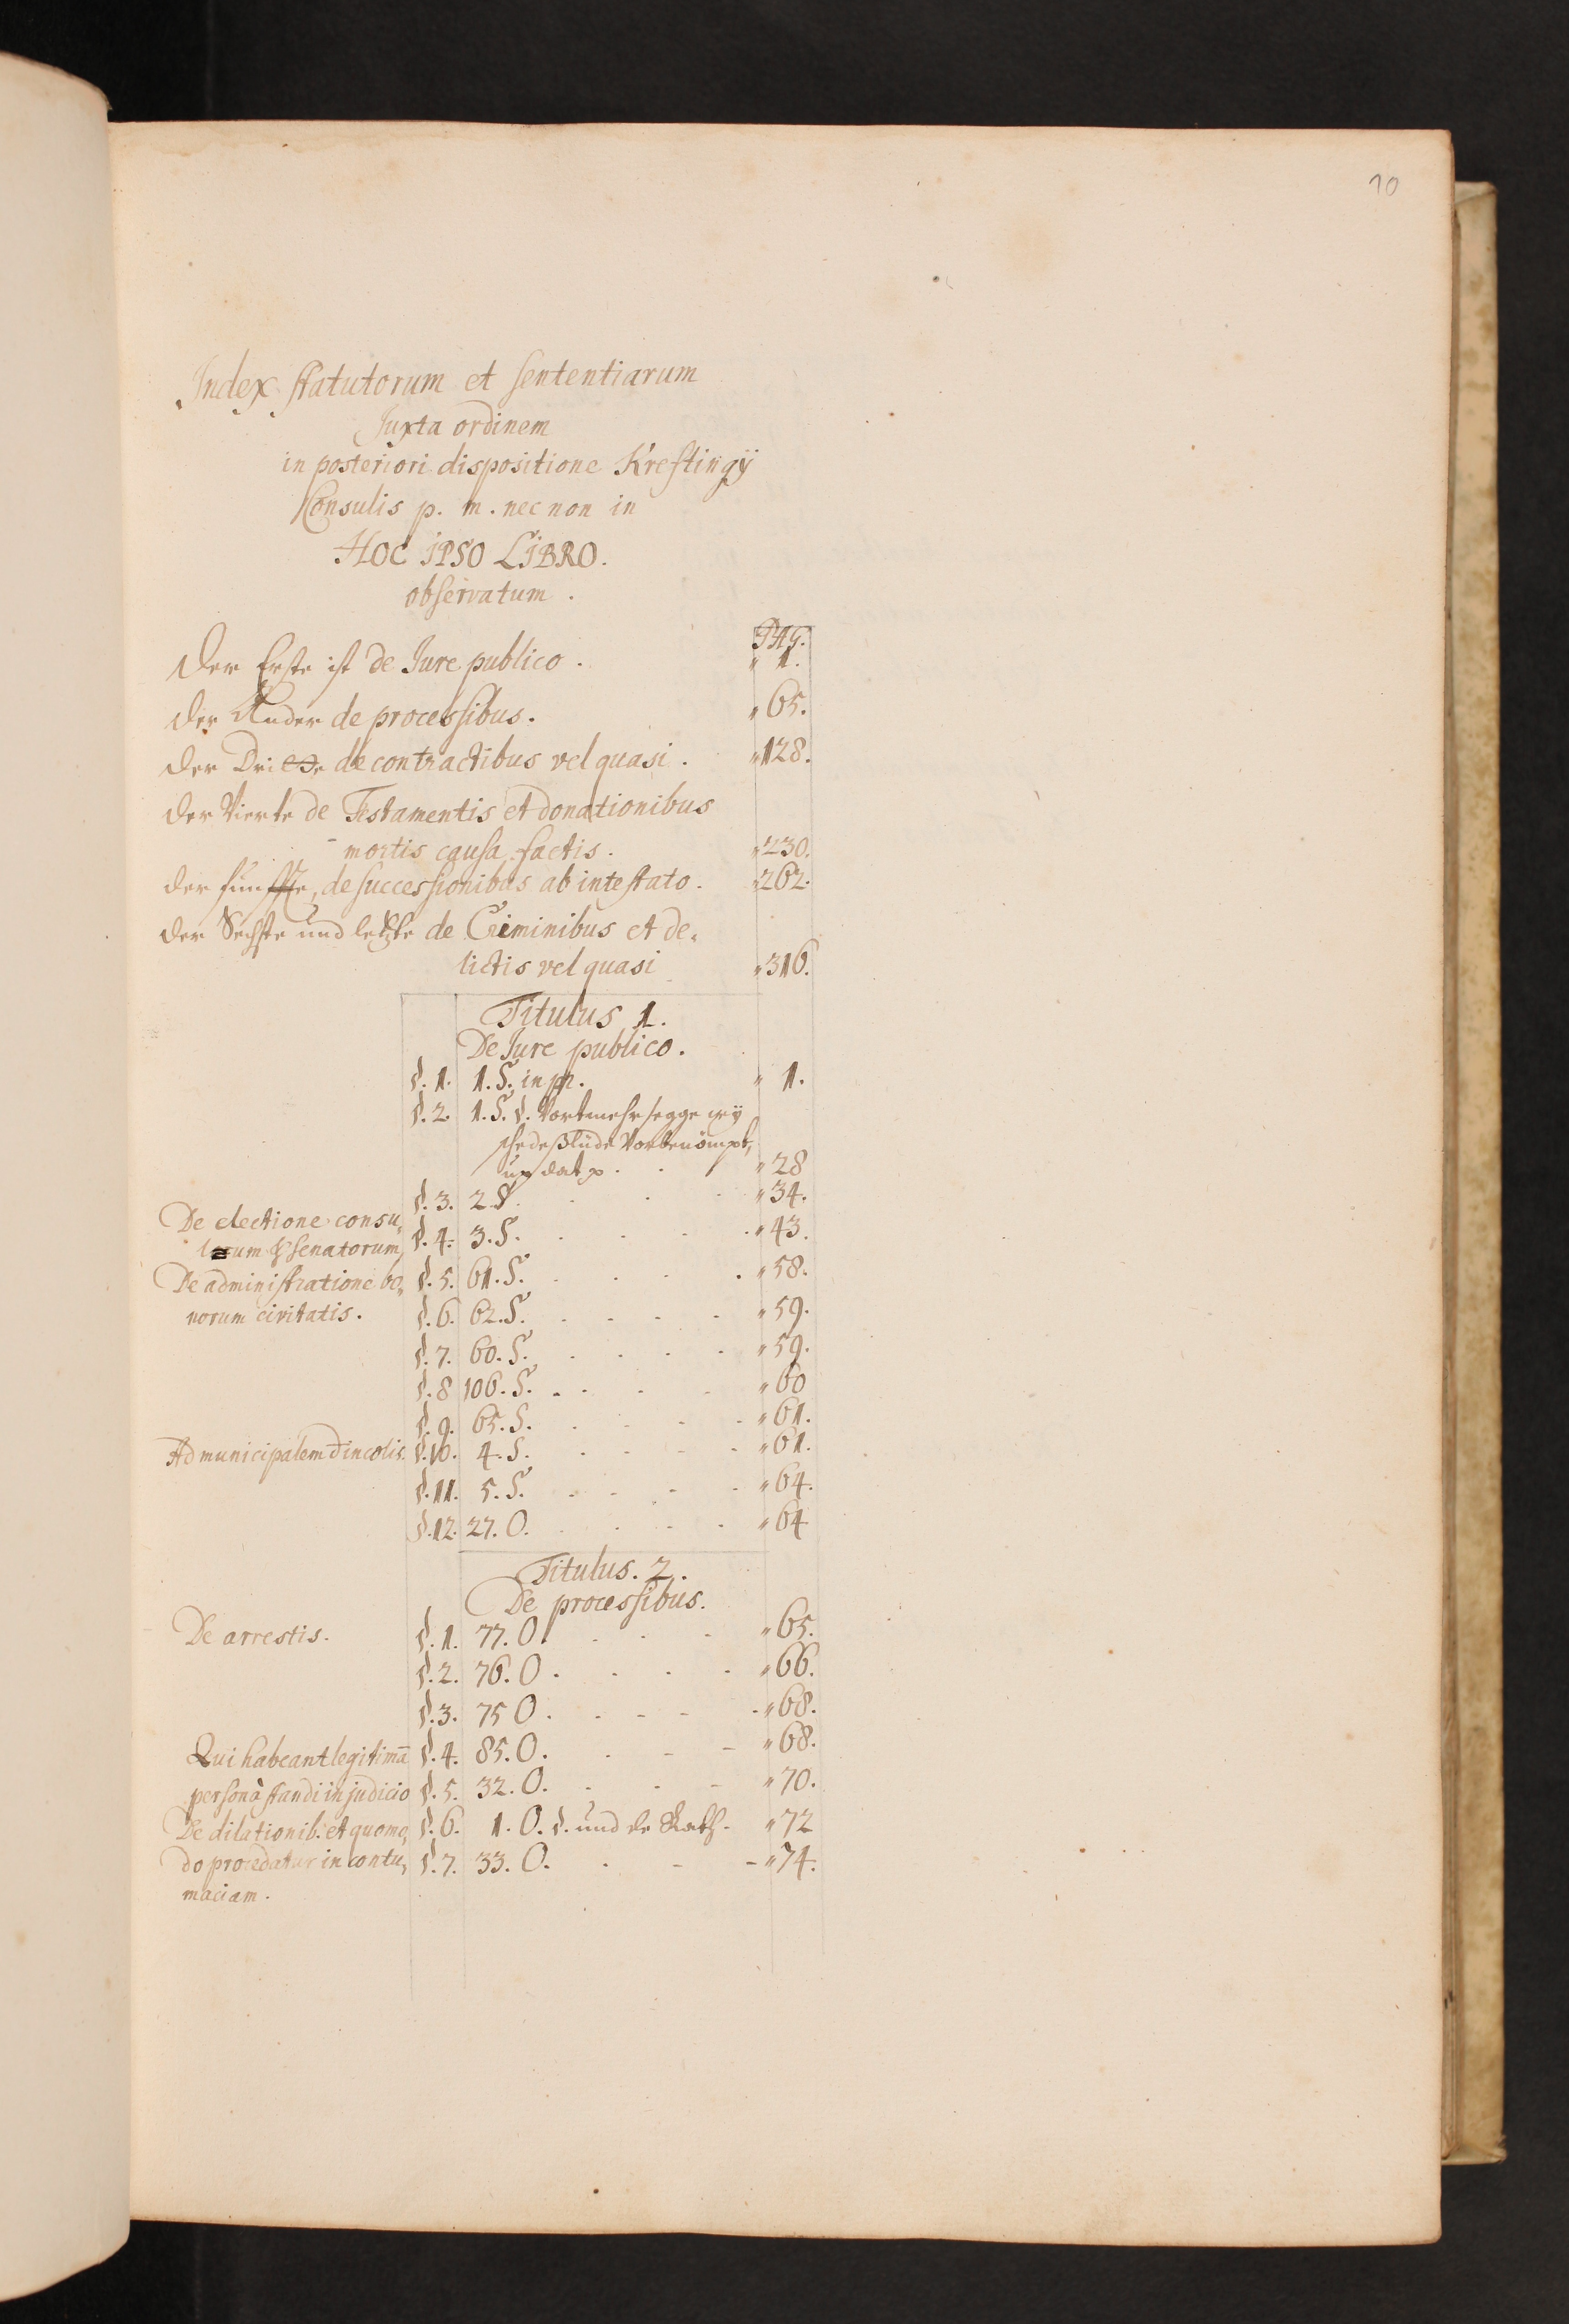 10
Index statutorum et sententiarum
Juxta ordinem
in posteriori dispositione Kreftingÿ
Consulis p. m. nec non in
HOC IPSO LIBRO.
observatum.
PAG.
Der Erste ist de Jure publico. " 1.
der Ander de processibus. " 65.
der Dritte de contractibus vel quasi. " 128.
der Vierte de Testamentis et donationibus
mortis causa factis. " 230.
der fünffte, de successionibus ab intestato. " 262.
der Sechste und letzte de Criminibus et de„
lictis vel quasi " 316.
Titulus 1.
De Jure publico.
§. 1. 1. S. in pr. " 1.
§. 2. 1. S. §. Vortmehr segge wÿ
schedeßlüde Vorbenömpt,
up dat " 28
§. 3. 2 S. " 34.
De electione consu„
lum & senatorum §. 4. 3. S. " 43.
De administratione bo„ §. 5. 61. S. " 58.
norum civitatis. §. 6. 62. S. " 59.
§. 7. 60. S. " 59.
§. 8 106. S. " 60
§. 9. 65. S. " 61.
Ad municipalem & incolis. §. 10. 4. S. " 61.
§. 11. 5. S. " 64.
§. 12. 27. O. " 64
Titulus. 2.
De processibus.
De arrestis. §. 1. 77. O. " 65.
§. 2. 76. O. " 66.
§. 3. 75 O. " 68.
Qui habeant legitimā §. 4. 85. O. " 68.
personā standi in judicio §. 5. 32. O. " 70.
De dilationib. et quomo„ §. 6. 1. O. §. und de Rath. " 72
do procedatur in contu„ §. 7. 33. O. " 74.
maciam.